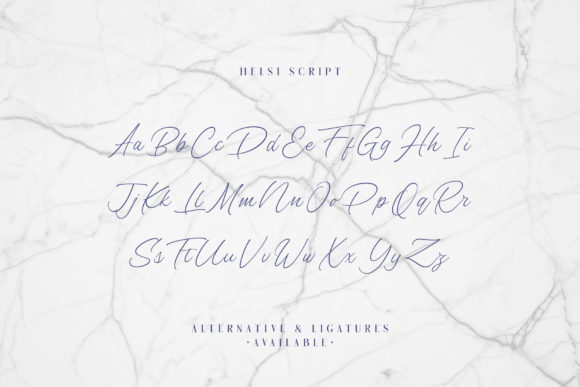 HELSI SCRIPT
Aa Bb Cc Dd Ee Ff Gg Hh Ii
Jj Kk Ll Mm Nn Oo Pp Qq Rr
Ss Tt Uu Vv Ww Xx Yy Zz
ALTERNATIVE & LIGATURES
•AVAILABLE•